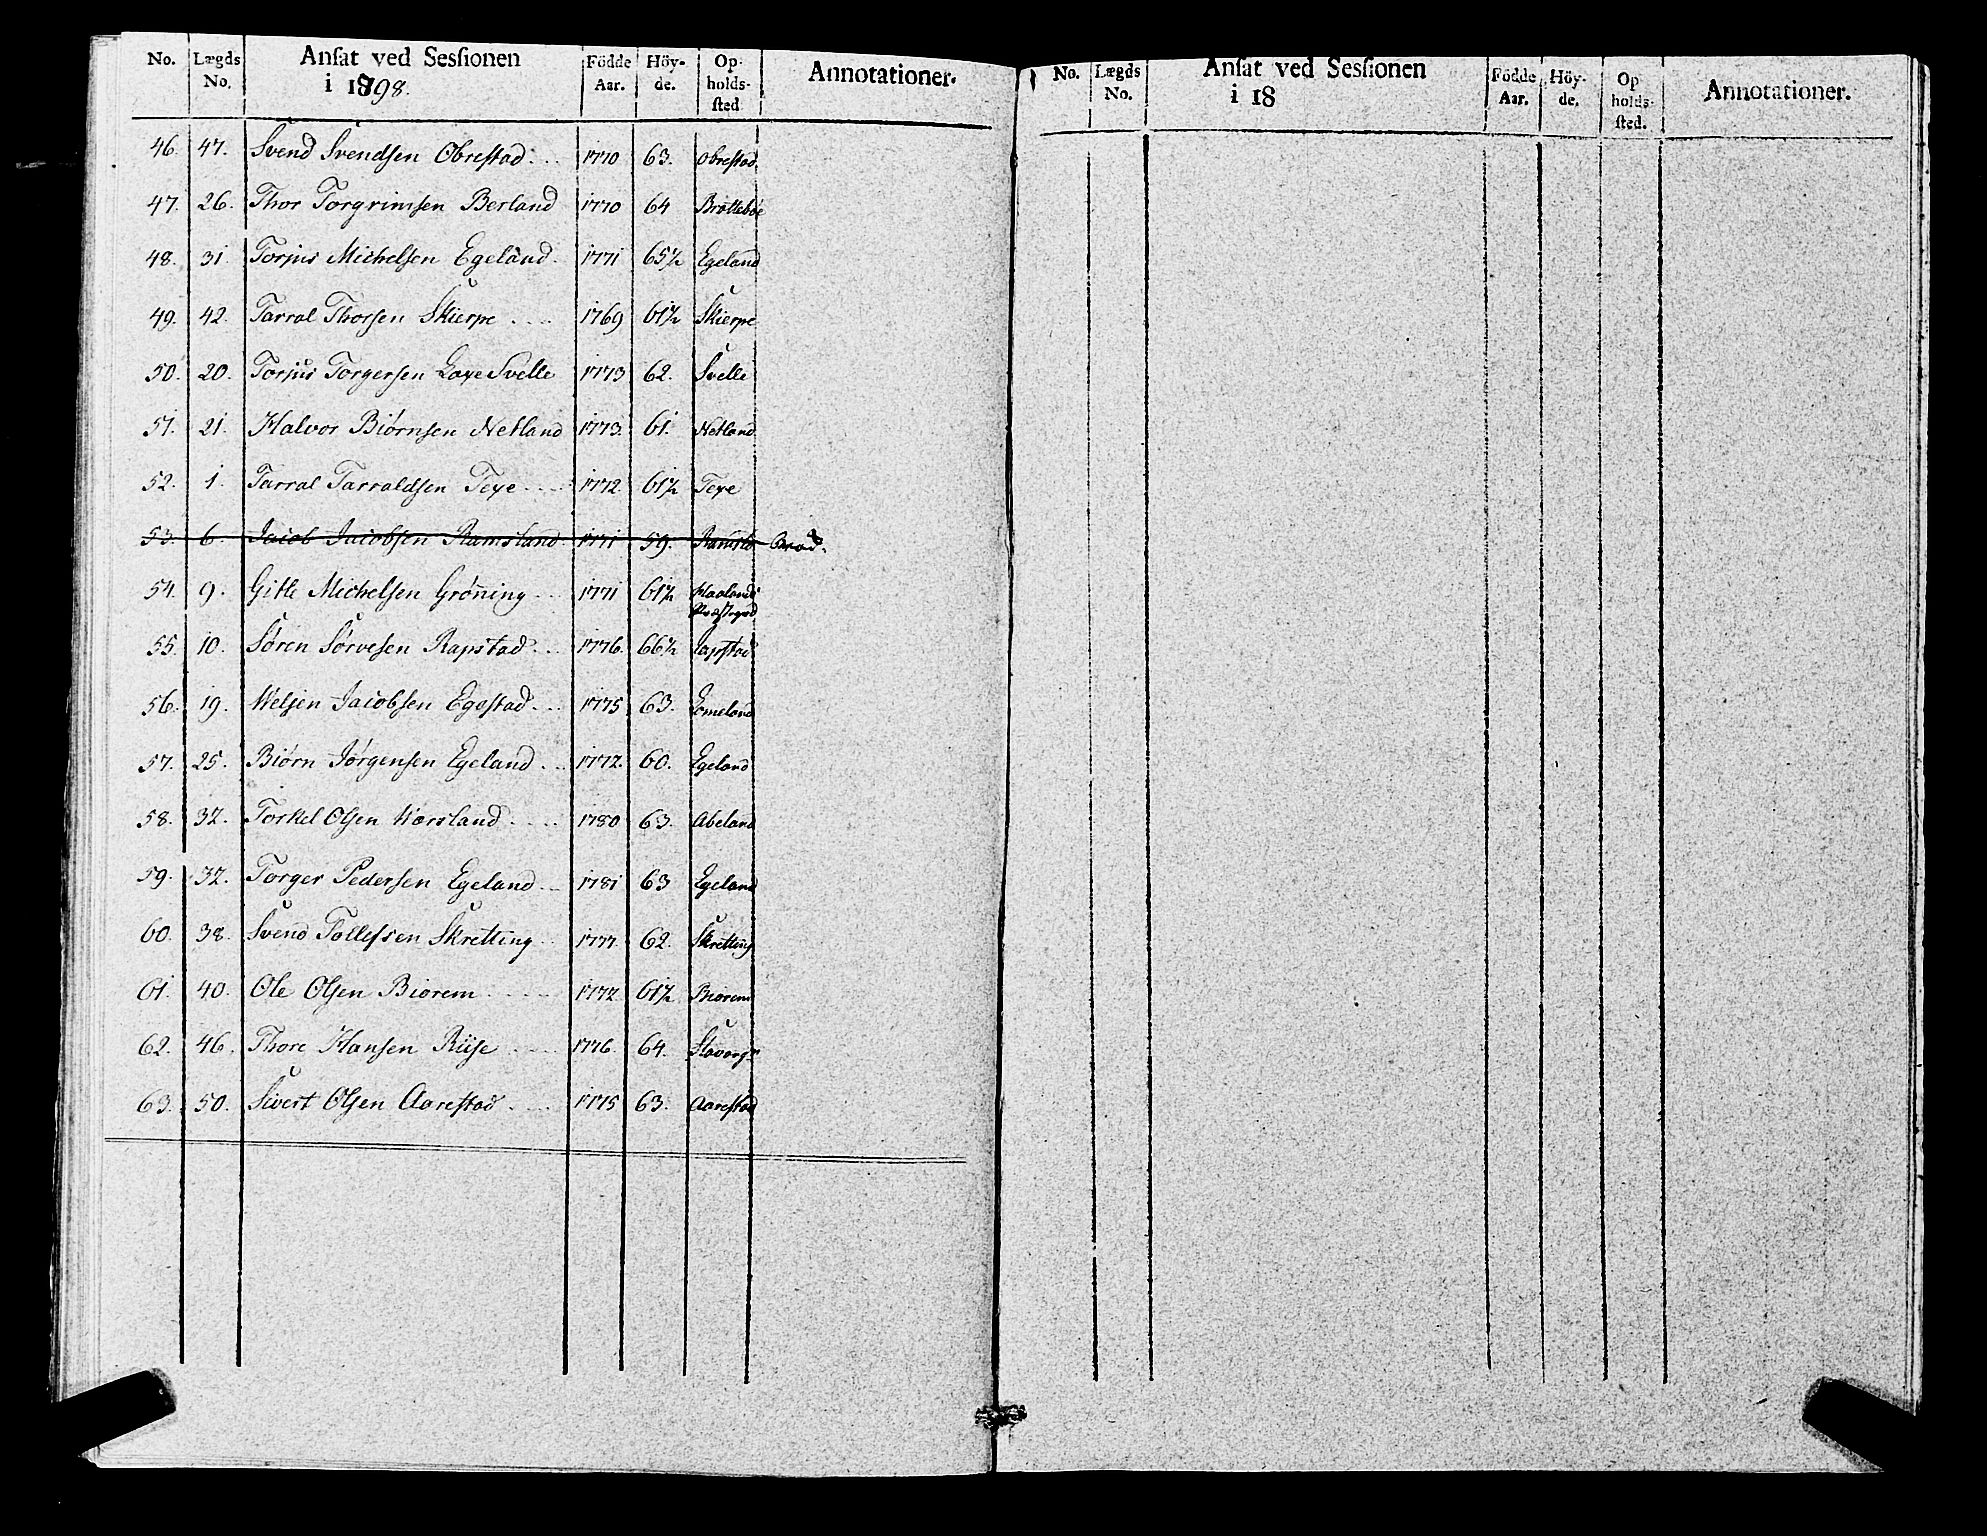 No. Lægds No. Ansat ved Sessionen i 1798. Födde Aar. Höyde. Opholdssted Annotationer.
46. 47. Svend Svendsen Obrestad 1770 63. Obrestad
47. 26. Thor Torgrimsen Berland 1770 64 Brottebøe
48. 31. Torjus Michelsen Egeland 1771 65½ Egeland
49. 42. Tarral Thorsen Skierpe 1769 61½ Skierpe
50. 20. Torjus Torgersen Laxesvelle 1773 62. Svelle
51. 21. Halvor Biørnsen Netland 1773. 61. Netland
52. 1. Tarral Tarraldsen Texe 1772 61½ Texe
53. 6. Jacob Jacobsen Ramsland 1771 59. Ramsld
54. 9. Gitle Michelsen Grøning 1771 61½ Haalands
Præstegrd
55. 10. Søren Sørvesen Rapstad 1776. 66½ Rapstad
56. 19. Welsen Jacobsen Egestad 1775 63. Lomeland
57. 25. Biørn Jørgensen Egeland 1772. 60. Egeland
58. 32. Torkel Olsen Wærsland 1780 63. Abeland
59. 32. Torger Pedersen Egeland 1781 63 Egeland
60. 38. Svend Tollefsen Skretting 1777. 62. Skretting
61. 40. Ole Olsen Biorem 1772 61½ Biorem
62. 46. Thore Hansen Riise 1776. 64. Stavangr
63. 50. Sivert Olsen Aarestad 1775 63. Aarestad
No. Lægds No. Ansat ved Sessionen i 18 Födde Aar. Höyde. Opholdssted. Annotationer.